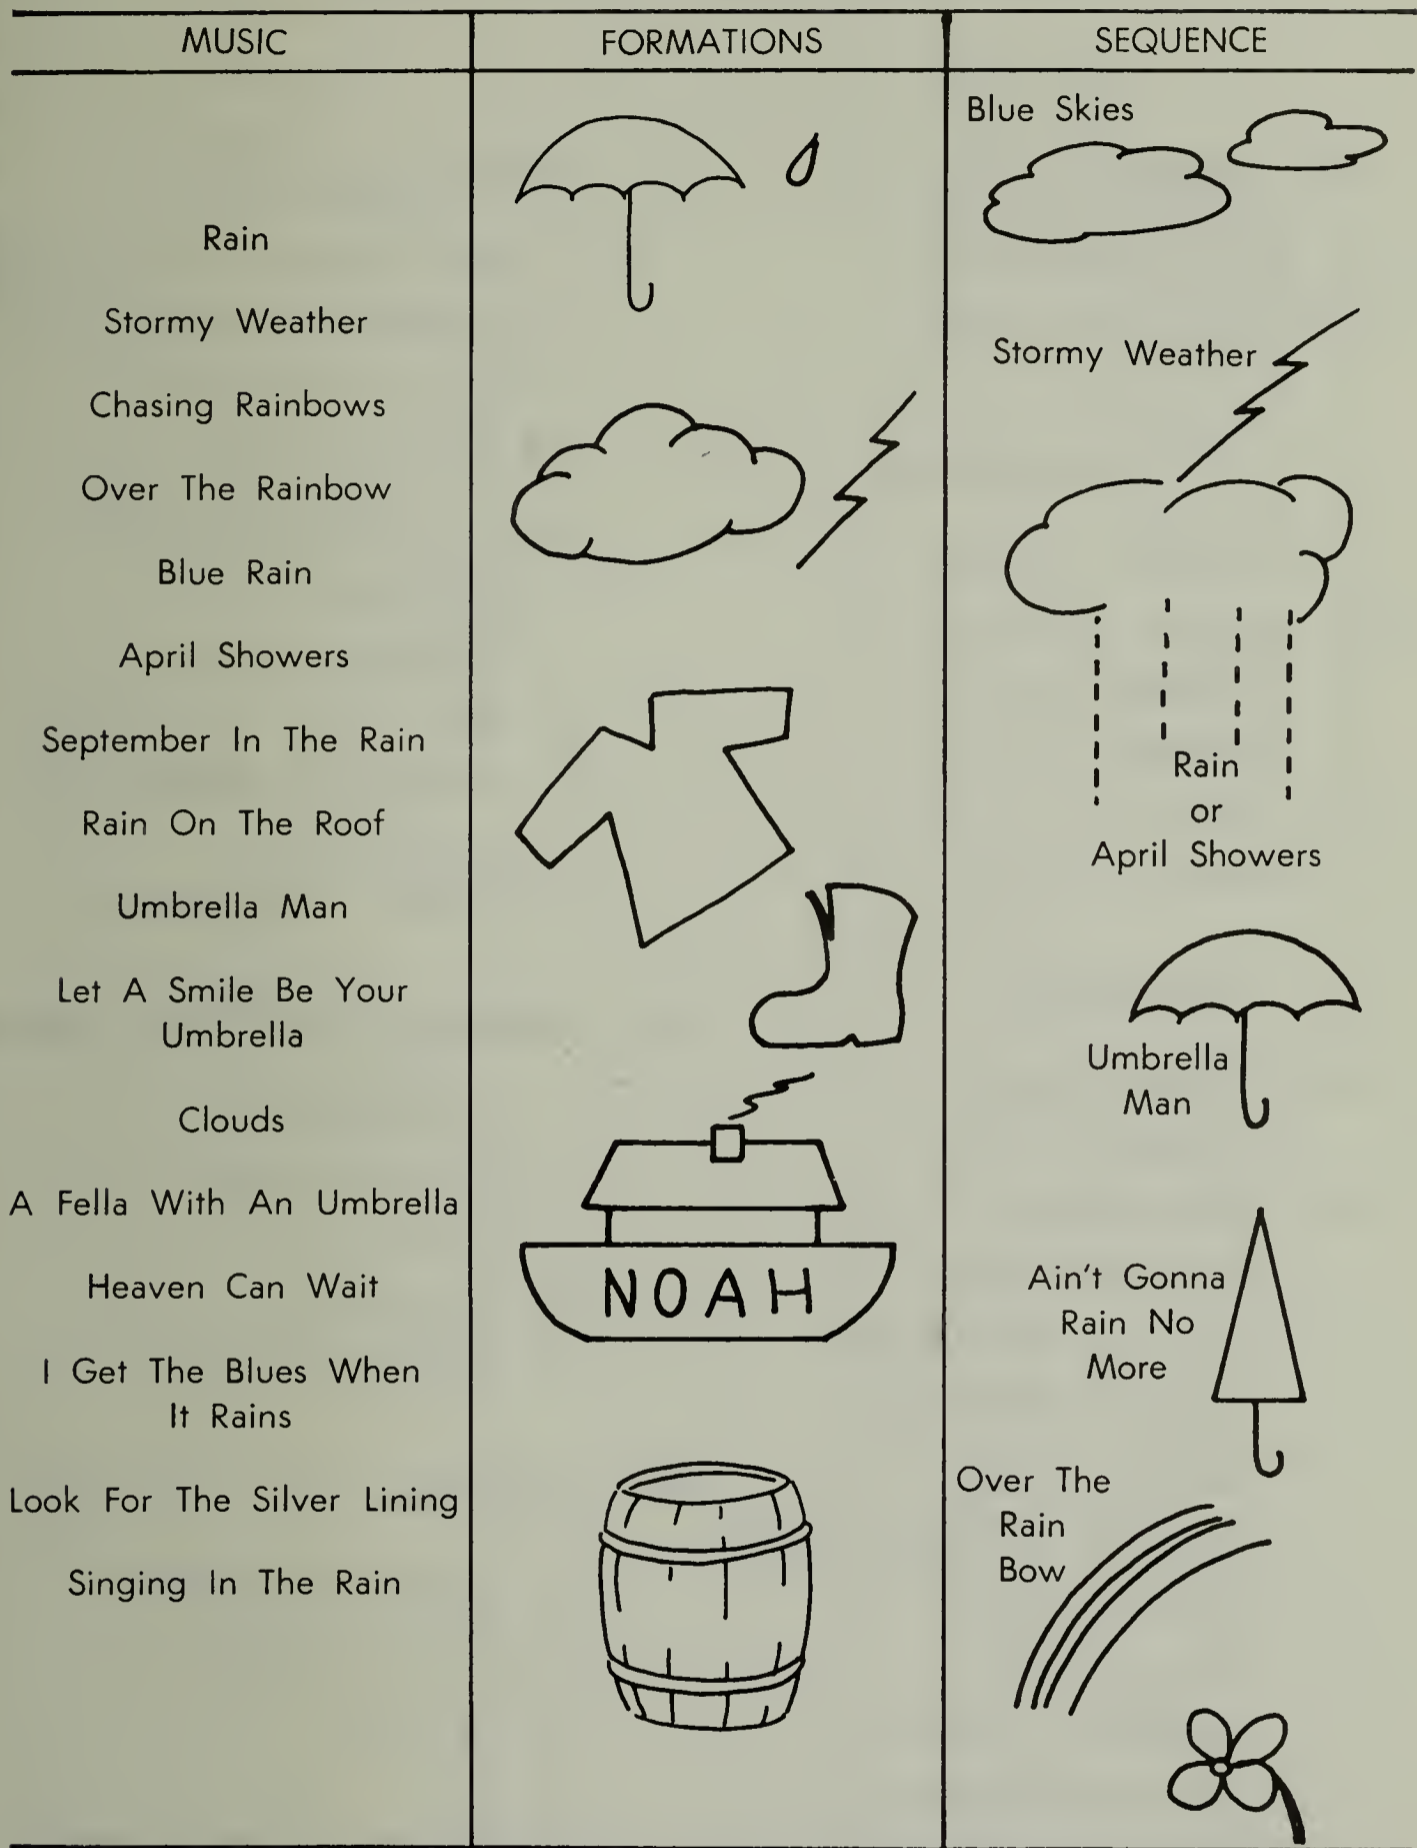 MUSIC
FORMATIONS
SEQUENCE
Rain
Stormy Weather
Chasing Rainbows
Over The Rainbow
Blue Rain
April Showers
September In The Rain
Rain On The Roof
Umbrella Man
Let A Smile Be Your
Umbrella
Clouds
A Fella With An Umbrella
Heaven Can Wait
I Get The Blues When
It Rains
Look For The Silver Lining
Singing In The Rain
NOAH
Blue Skies
Stormy Weather
Rain
or
April Showers
Umbrella
Man
Ain't Gonna
Rain No
More
Over The
Rain
Bow